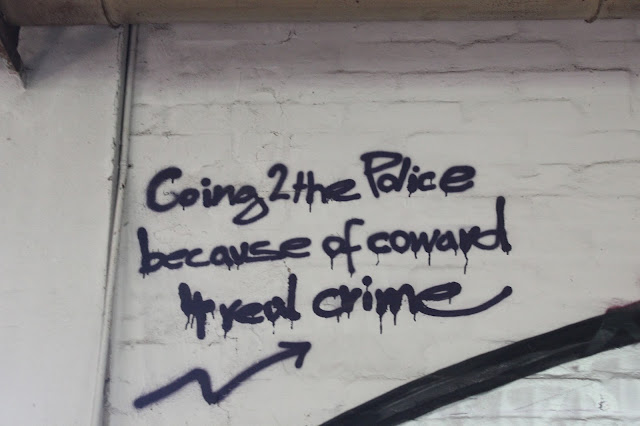 Going 2 the Police
because of coward
real crime